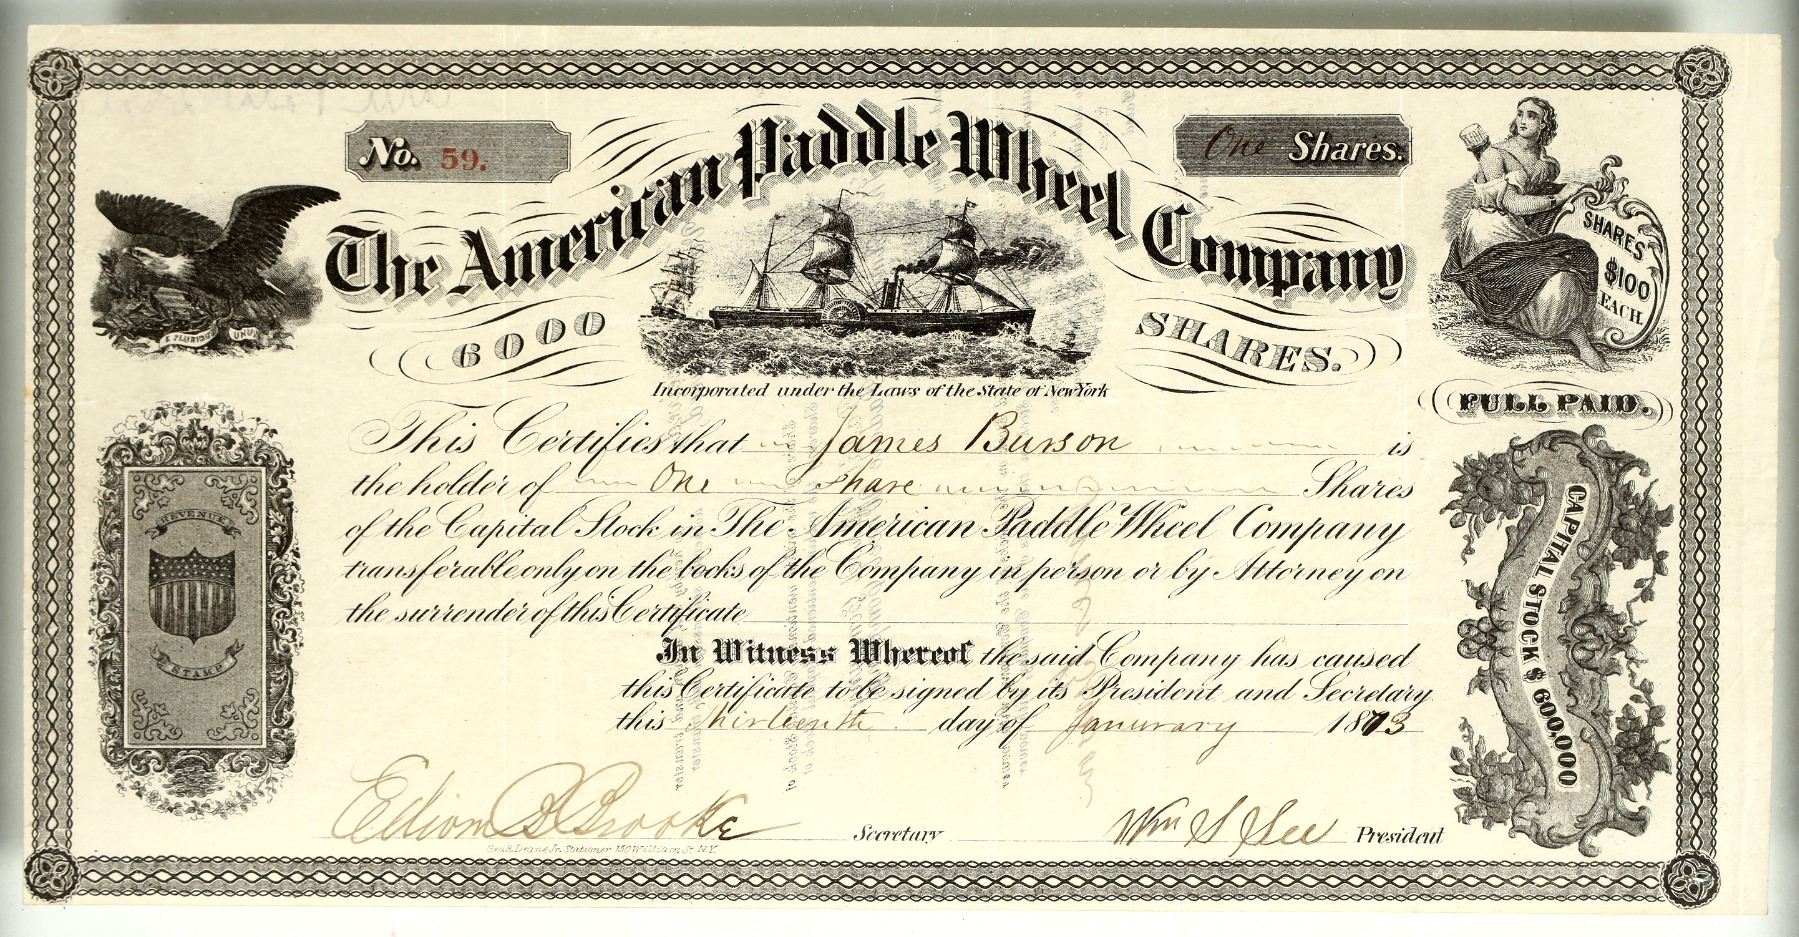 No. 59.
One Shares.
The American Paddle Wheel Company
SHARES $100 EACH
E PLURIBUS UNUM
6000 SHARES.
Incorporated under the Laws of the State of New York
FULL PAID.
This Certifies that James Burson is
the holder of One Share Shares
of the Capital Stock in The American Paddle Wheel Company
transferable only on the books of the Company in person or by Attorney on
the surrender of this Certificate
REVENUE
STAMP
CAPITAL STOCK $600,000
In Witness Whereof the said Company has caused
this Certificate to be signed by its President and Secretary
this thirteenth day of Janurary 1873
Brooke Secretary
Wm S See President
Geo. R. Deane Jr. Stationer 150 William St. N.Y.